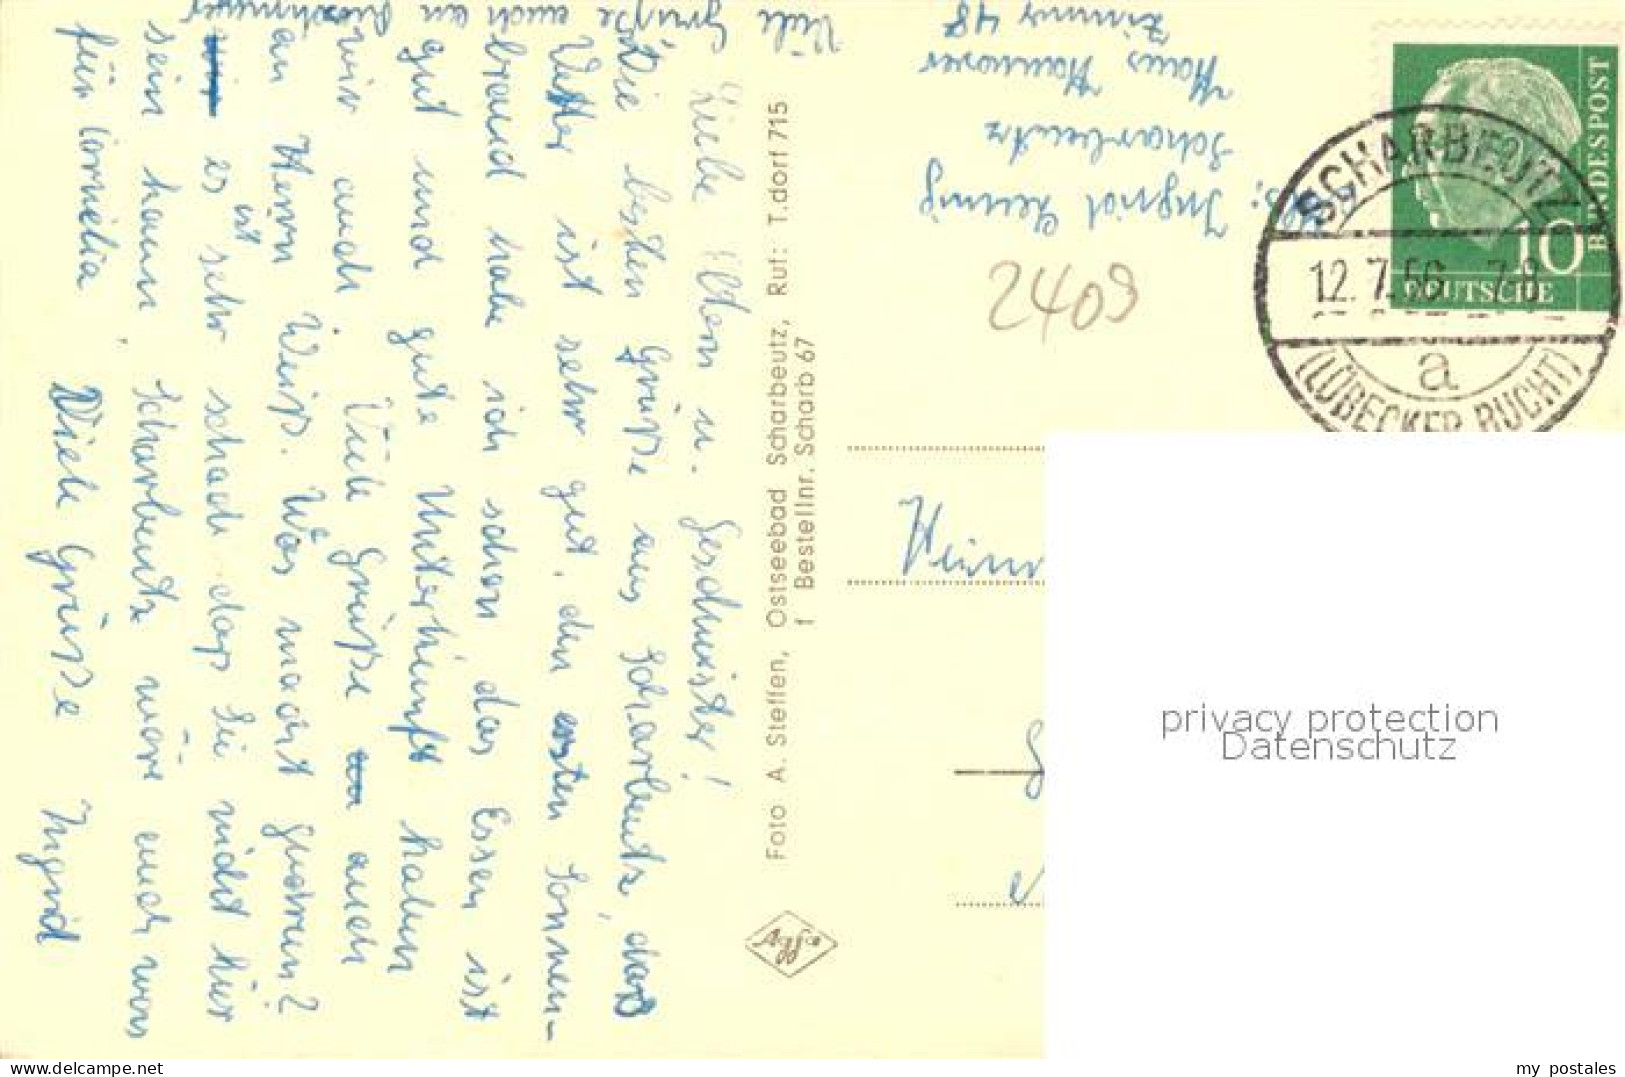 Liebe Eltern u. Geschwister!
Die besten Grüße aus Scharbeutz, das
Wetter ist sehr gut, den ersten Sonnen-
brand habe ich schon das Essen ist
gut und gute Unterkunft haben
wir auch. Viele Grüße auch
an Herrn Weiß. Was macht
es ist sehr schade daß Sie nicht hier
sein kann, Scharbeutz wäre auch was
für Cornelia. Viele Grüße Ingrid
Viele Grüße auch an
Foto A. Steffen, Ostseebad Scharbeutz, Ruf: T.dorf 715
1 Bestellnr. Scharb 67
Agfa
Abs: Ingrid
Scharbeutz
Haus Hannover
Zimmer 48
2409
DEUTSCHE
BUNDESPOST
10
SCHARBEUTZ
12.7.56 7-8
a
(LÜBECKER BUCHT)
privacy protection
Datenschutz
my_postales
www.delcampe.net